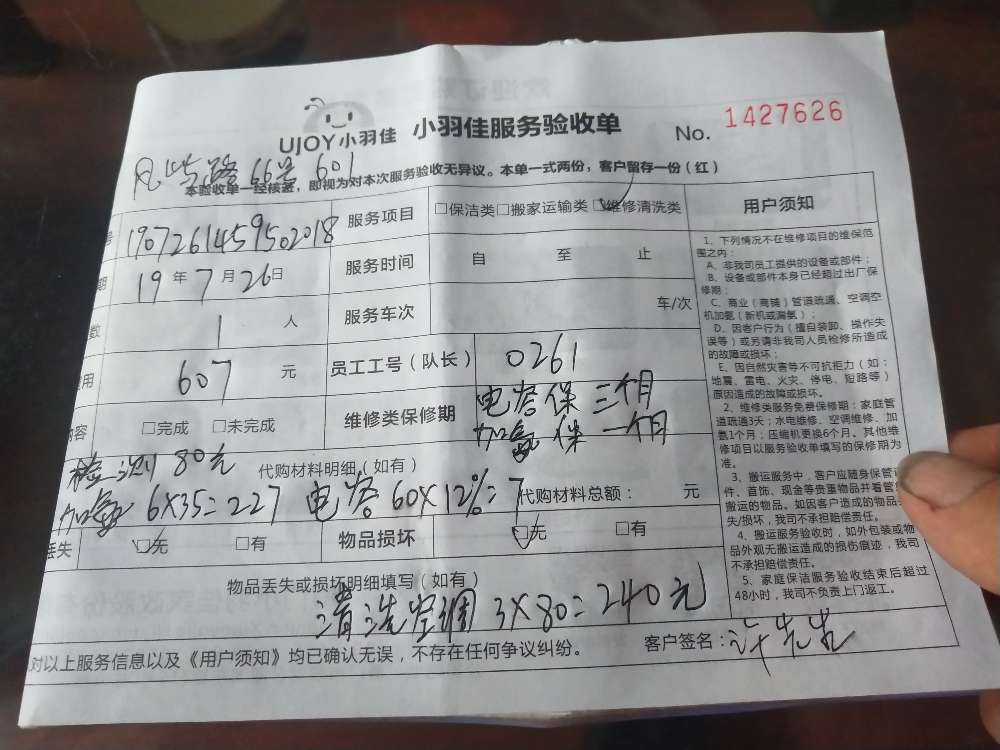 UJOY小羽佳 小羽佳服务验收单 No. 1427626
路66号 601
本验收单一经核签，即视为对本次服务验收无异议。本单一式两份，客户留存一份（红）
号 1907261459502018 服务项目 □保洁类□搬家运输类□维修清洗类
期 19年7月26日 服务时间 自 至 止
数 1 人 服务车次 车/次
费用 607 元 员工工号（队长） 0261
内容 □完成 □未完成 维修类保修期 电容保三个月
加氨保一个月
检测80元 代购材料明细（如有）
加氨6X35=227 电容60X12%=7 代购材料总额： 元
丢失 □无 □有 物品损坏 □无 □有
物品丢失或损坏明细填写（如有）
清洗空调 3X80=240元
对以上服务信息以及《用户须知》均已确认无误，不存在任何争议纠纷。 客户签名：许先生
用户须知
1、下列情况不在维修项目的维保范
围之内：
A、非我司员工提供的设备或部件；
B、设备或部件本身已经超过出厂保
修期；
C、商业（商铺）管道疏通、空调空
机加氨（新机或漏氨）；
D、因客户行为（擅自装卸、操作失
误等）或另请非我司人员检修所造成
的故障或损坏；
E、因自然灾害等不可抗拒力（如：
地震、雷电、火灾、停电、短路等）
原因造成的故障或损坏。
2、维修类服务免费保修期：家庭管
道疏通3天；水电维修、空调维修、加
氨1个月；压缩机更换6个月。其他维
修项目以服务验收单填写的保修期为
准。
3、搬运服务中，客户应随身保管证
件、首饰、现金等贵重物品并看管
搬运的物品。如因客户造成的物品
失/损坏，我司不承担赔偿责任。
4、搬运服务验收时，如外包装或物
品外观无搬运造成的损伤痕迹，我司
不承担赔偿责任。
5、家庭保洁服务验收结束后超过
48小时，我司不负责上门返工。